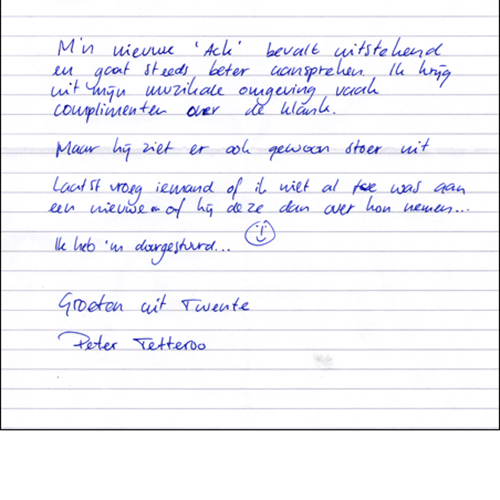 M'n nieuwe 'Ack' bevalt uitstekend
en gaat steeds beter aanspreken. Ik krijg
uit mijn muzikale omgeving vaak
complimenten over de klank.
Maar hij ziet er ook gewoon stoer uit
Laatst vroeg iemand of ik niet al toe was aan
een nieuwe - of hij deze dan over kon nemen...
Ik heb 'm doorgestuurd...
Groeten uit Twente
Peter Tetteroo